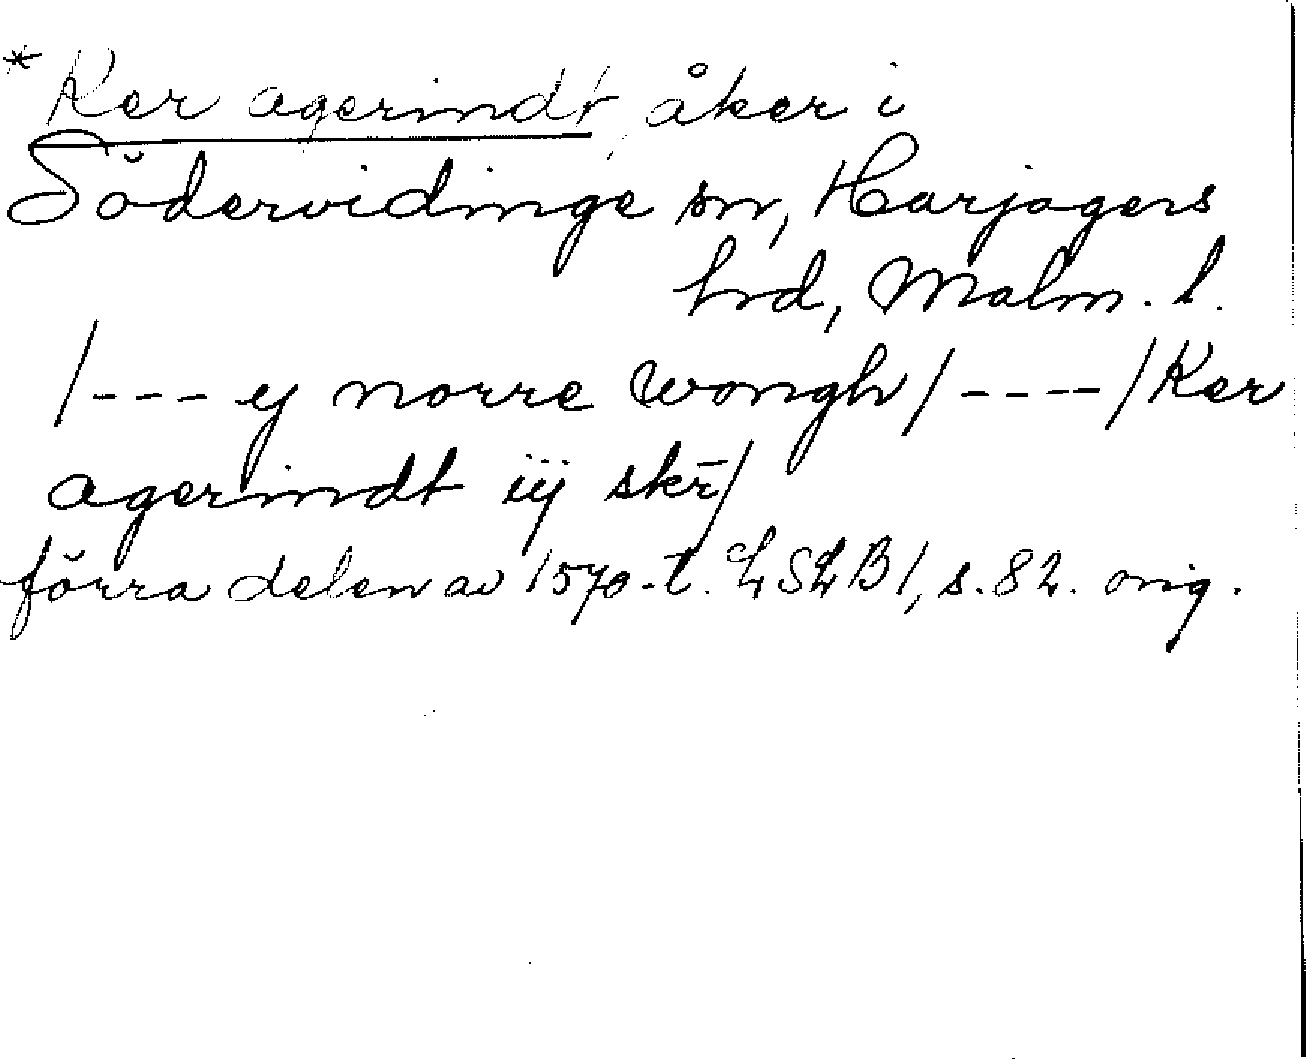 * Ker agerindt, åker i
Södervidinge sn, Harjagers
hrd, Malm. l.
/--- ej norre wongh/----/Ker
agerindt iij skr̄/
förra delen av 1570-t. LSLB1, s. 82. orig.